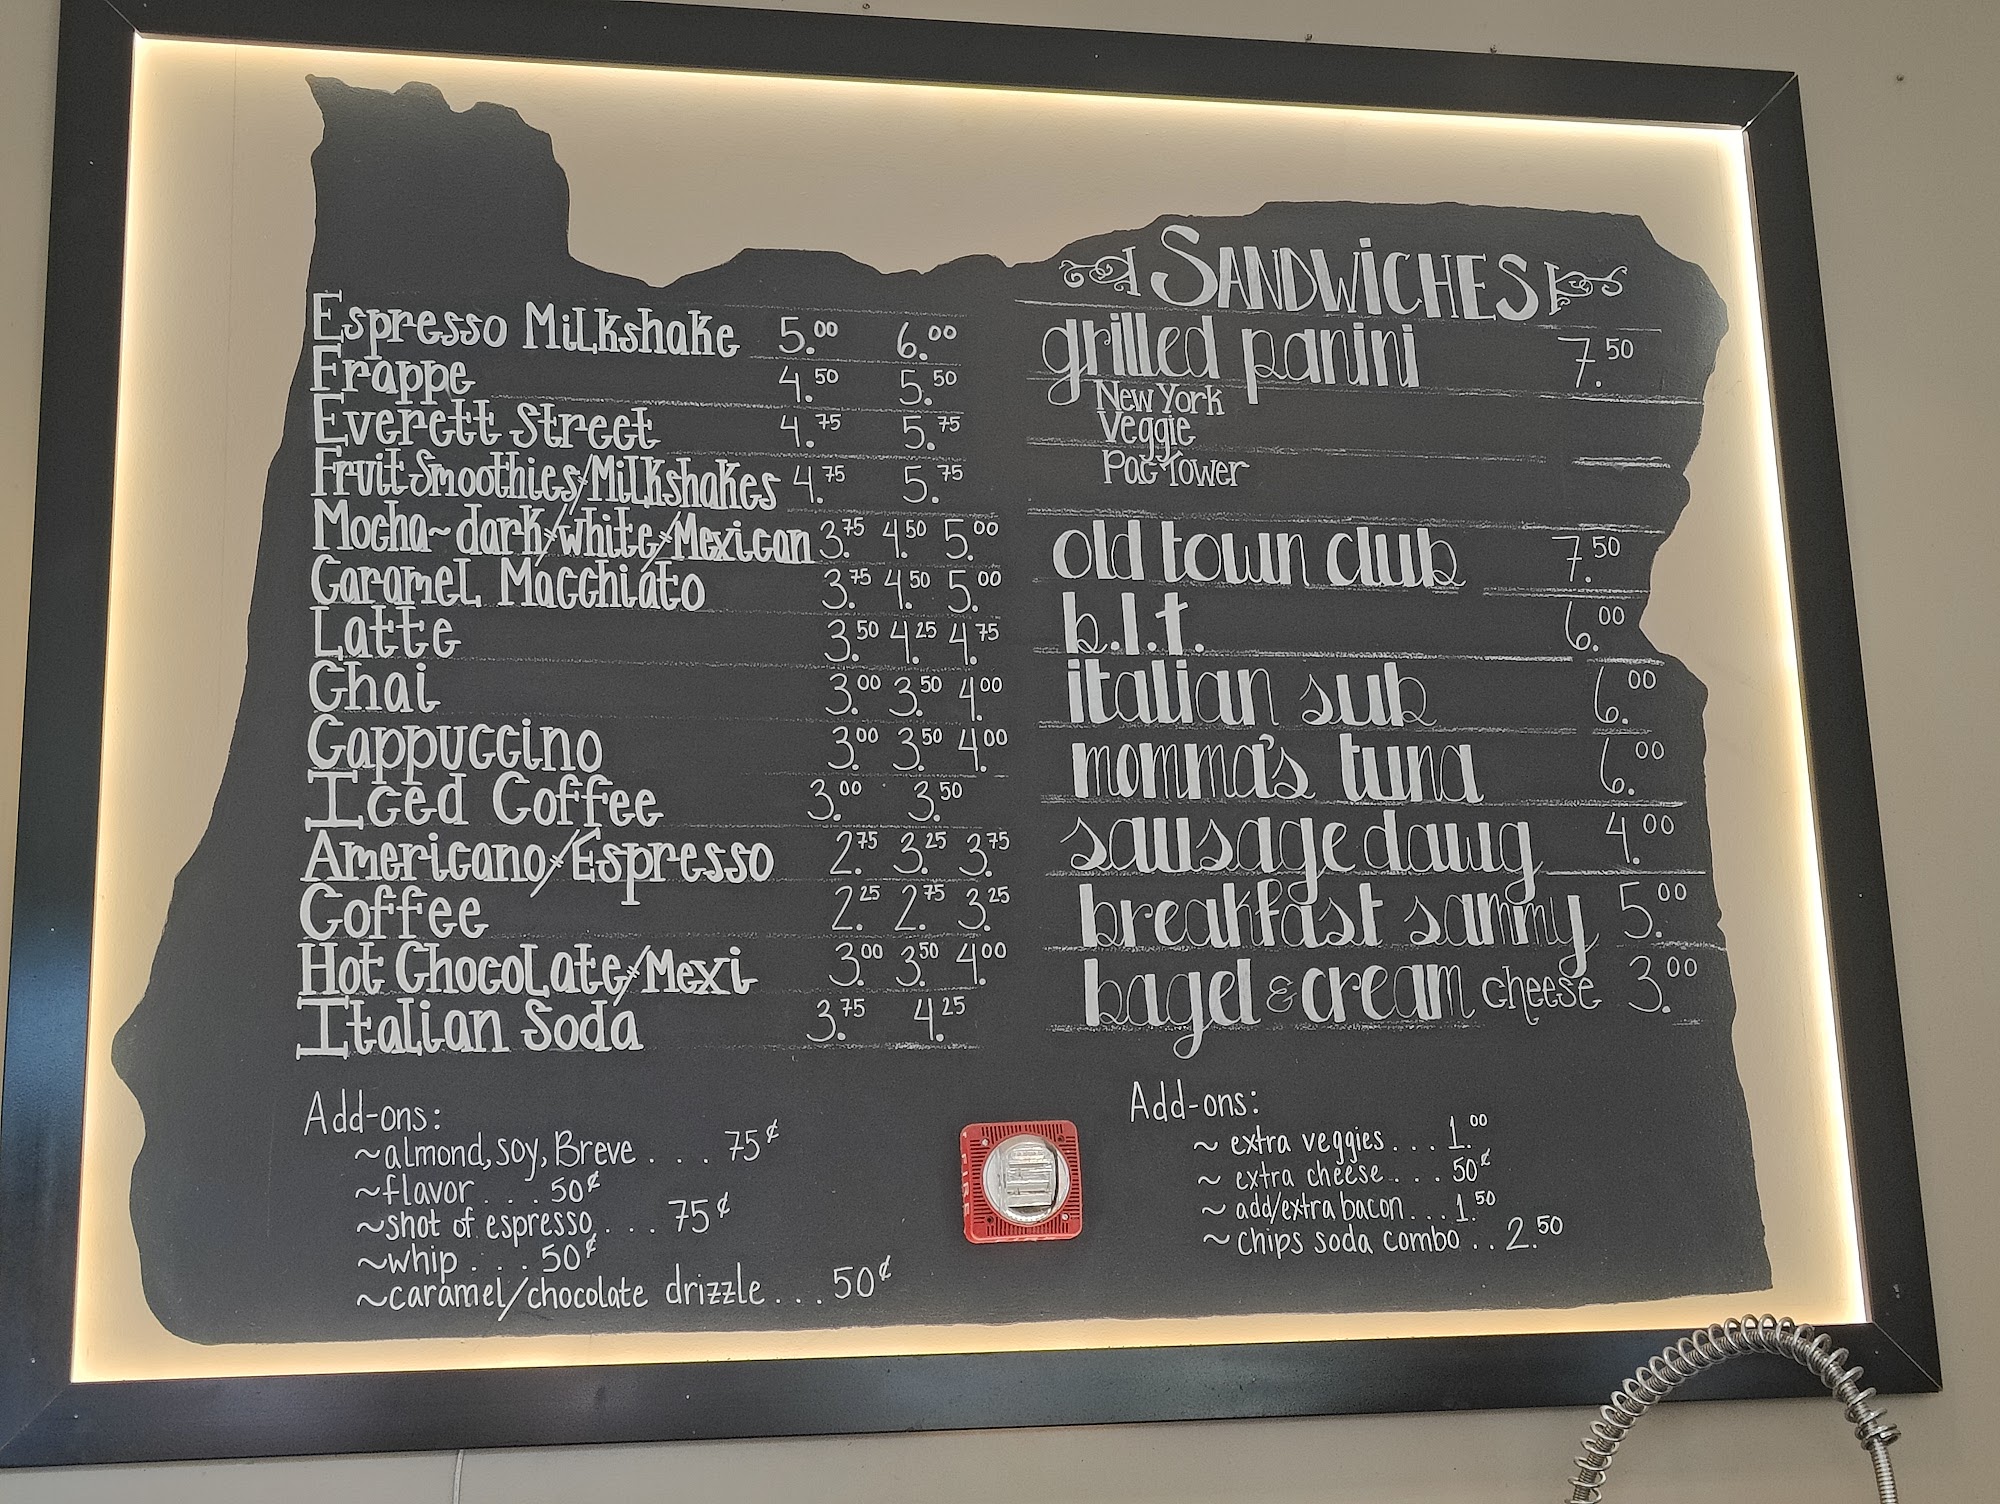 Espresso Milkshake 5.00 6.00
Frappe 4.50 5.50
Everett Street 4.75 5.75
Fruit Smoothies/Milkshakes 4.75 5.75
Mocha~dark/white/Mexican 3.75 4.50 5.00
Caramel Macchiato 3.75 4.50 5.00
Latte 3.50 4.25 4.75
Chai 3.00 3.50 4.00
Cappuccino 3.00 3.50 4.00
Iced Coffee 3.00 3.50
Americano/Espresso 2.75 3.25 3.75
Coffee 2.25 2.75 3.25
Hot Chocolate/Mexi 3.00 3.50 4.00
Italian Soda 3.75 4.25
Add-ons:
~almond, soy, Breve . . . 75¢
~flavor . . . 50¢
~shot of espresso . . . 75¢
~whip . . . 50¢
~caramel/chocolate drizzle . . . 50¢
SANDWiCHES
grilled panini 7.50
New York
Veggie
Pac Tower
old town club 7.50
b.l.t. 6.00
italian sub 6.00
momma's tuna 6.00
sausage dawg 4.00
breakfast sammy 5.00
bagel & cream cheese 3.00
Add-ons:
~ extra veggies . . . 1.00
~ extra cheese . . . 50¢
~ add/extra bacon . . . 1.50
~ chips soda combo . . 2.50
FIRE